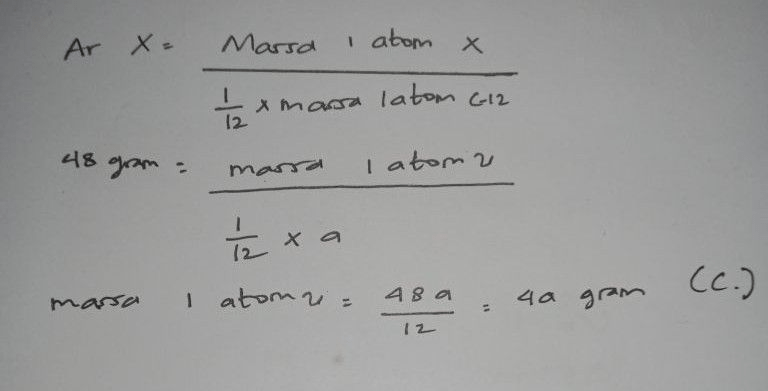 Ar X = Massa 1 atom X
1/12 x massa 1 atom C-12
48 gram = massa 1 atom v
1/12 x a
massa 1 atom v = 48 a / 12 = 4a gram (C.)